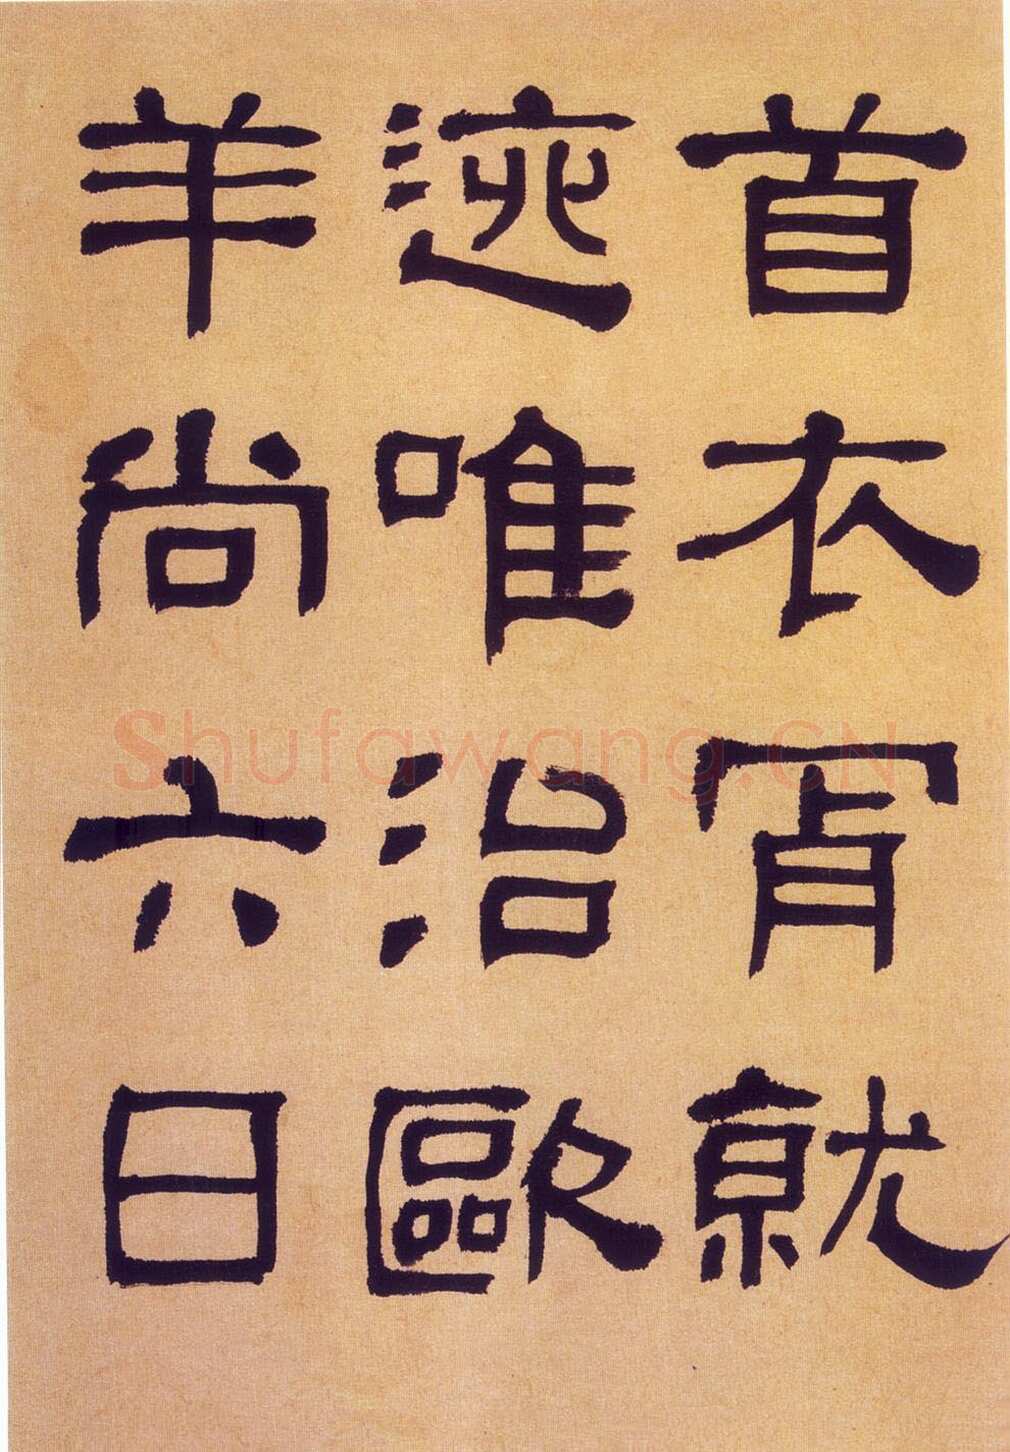 首衣就
迹唯治歐
羊尚六日
Shufawang.CN